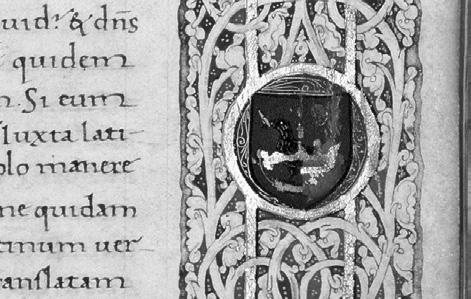 uid? & dn̄s
quidem
n. Si eum
luxta lati-
olo manere
ne quidam
tinum uer
ranslatam